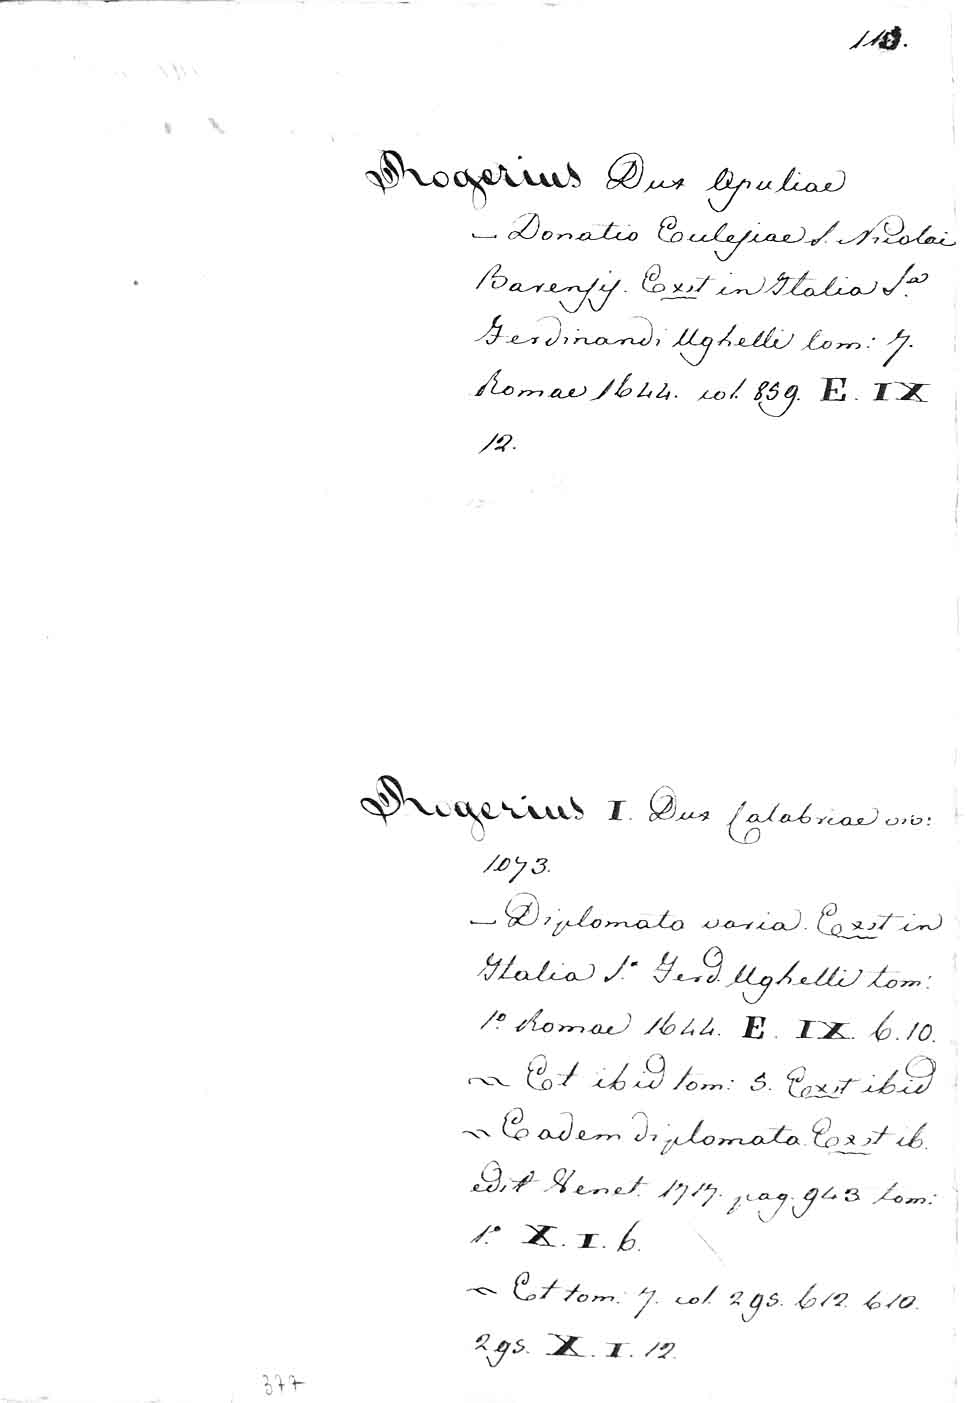 113.
Rogerius Dux Apuliae
— Donatio Ecclesiae S. Nicolai
Barensis. Exst in Italia S.ª
Ferdinandi Ughelli tom: 7.
Romae 1644. col. 859. E. IX
12.
Rogerius I. Dux Calabriae viv:
1073.
— Diplomata varia. Exst in
Italia S.ª Ferd. Ughelli tom:
1.º Romae 1644. E. IX. 6.10.
~ Et ibid tom: 5. Exst ibid
~ Eadem diplomata. Exst ib.
edit Venet. 1717. pag. 943 tom:
1.º X. I. 6.
~ Et tom: 7. col. 295. 612. 610.
295. X. I. 12.
377